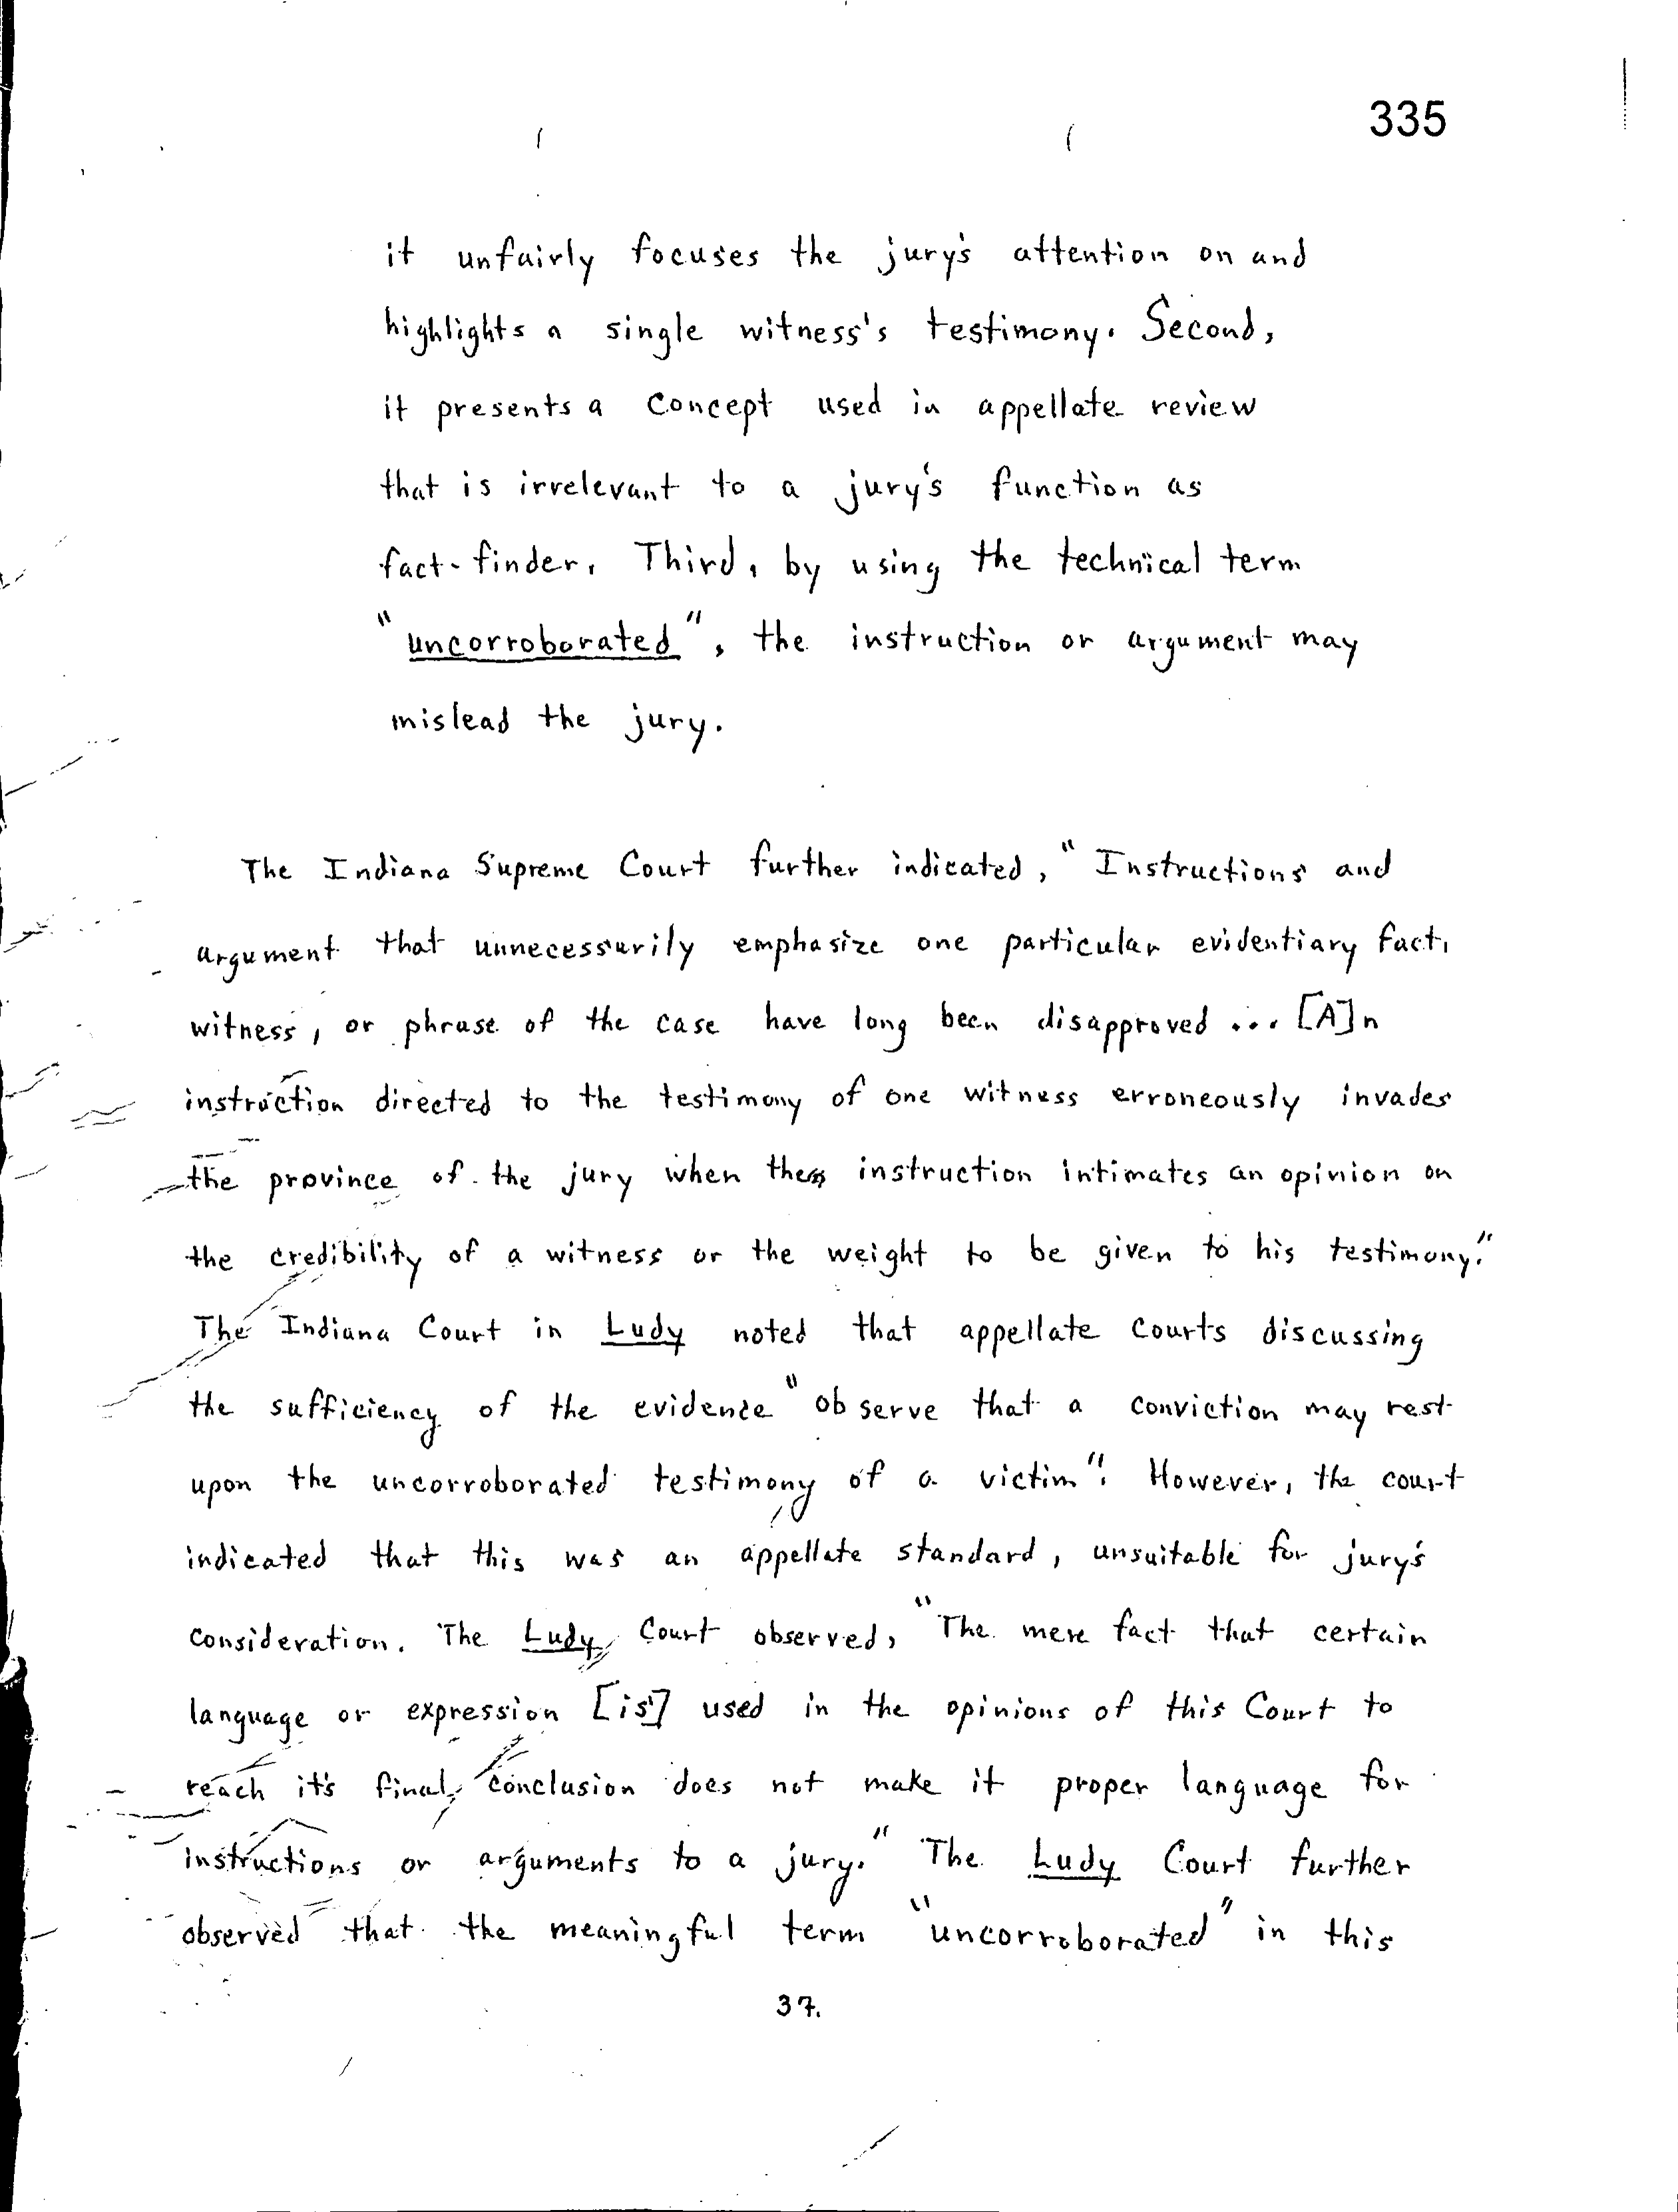 335
it unfairly focuses the jury's attention on and
highlights a single witness's testimony. Second,
it presents a concept used in appellate review
that is irrelevant to a jury's function as
fact-finder. Third, by using the technical term
"uncorroborated", the instruction or argument may
mislead the jury.
The Indiana Supreme Court further indicated, "Instructions and
argument that unnecessarily emphasize one particular evidentiary fact,
witness, or phrase of the case have long been disapproved ... [A]n
instruction directed to the testimony of one witness erroneously invades
the province of the jury when the instruction intimates an opinion on
the credibility of a witness or the weight to be given to his testimony."
The Indiana Court in Ludy noted that appellate Courts discussing
the sufficiency of the evidence "observe that a conviction may rest
upon the uncorroborated testimony of a victim". However, the court
indicated that this was an appellate standard, unsuitable for jury's
consideration. The Ludy Court observed, "The mere fact that certain
language or expression [is] used in the opinions of this Court to
reach it's final, conclusion does not make it proper language for
instructions or arguments to a jury." The Ludy Court further
observed that the meaningful term "uncorroborated" in this
37.